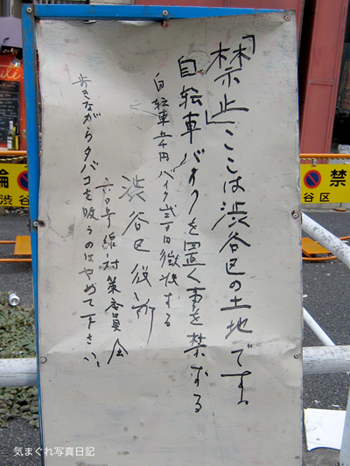 「禁止」ここは渋谷区の土地です。
自転車バイクを置く事を禁ずる
自転車五千円バイク弐万円徴収する
渋谷区役所
六号線対策委員会
歩きながらタバコを吸うのはやめて下さい。
輪
渋谷
禁
区
気まぐれ写真日記